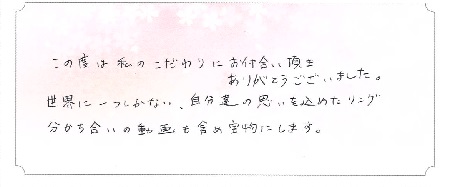 この度は私のこだわりにお付合い頂き
ありがとうございました。
世界に一つしかない、自分達の思いを込めたリング
分かち合いの動画も含め宝物にします。